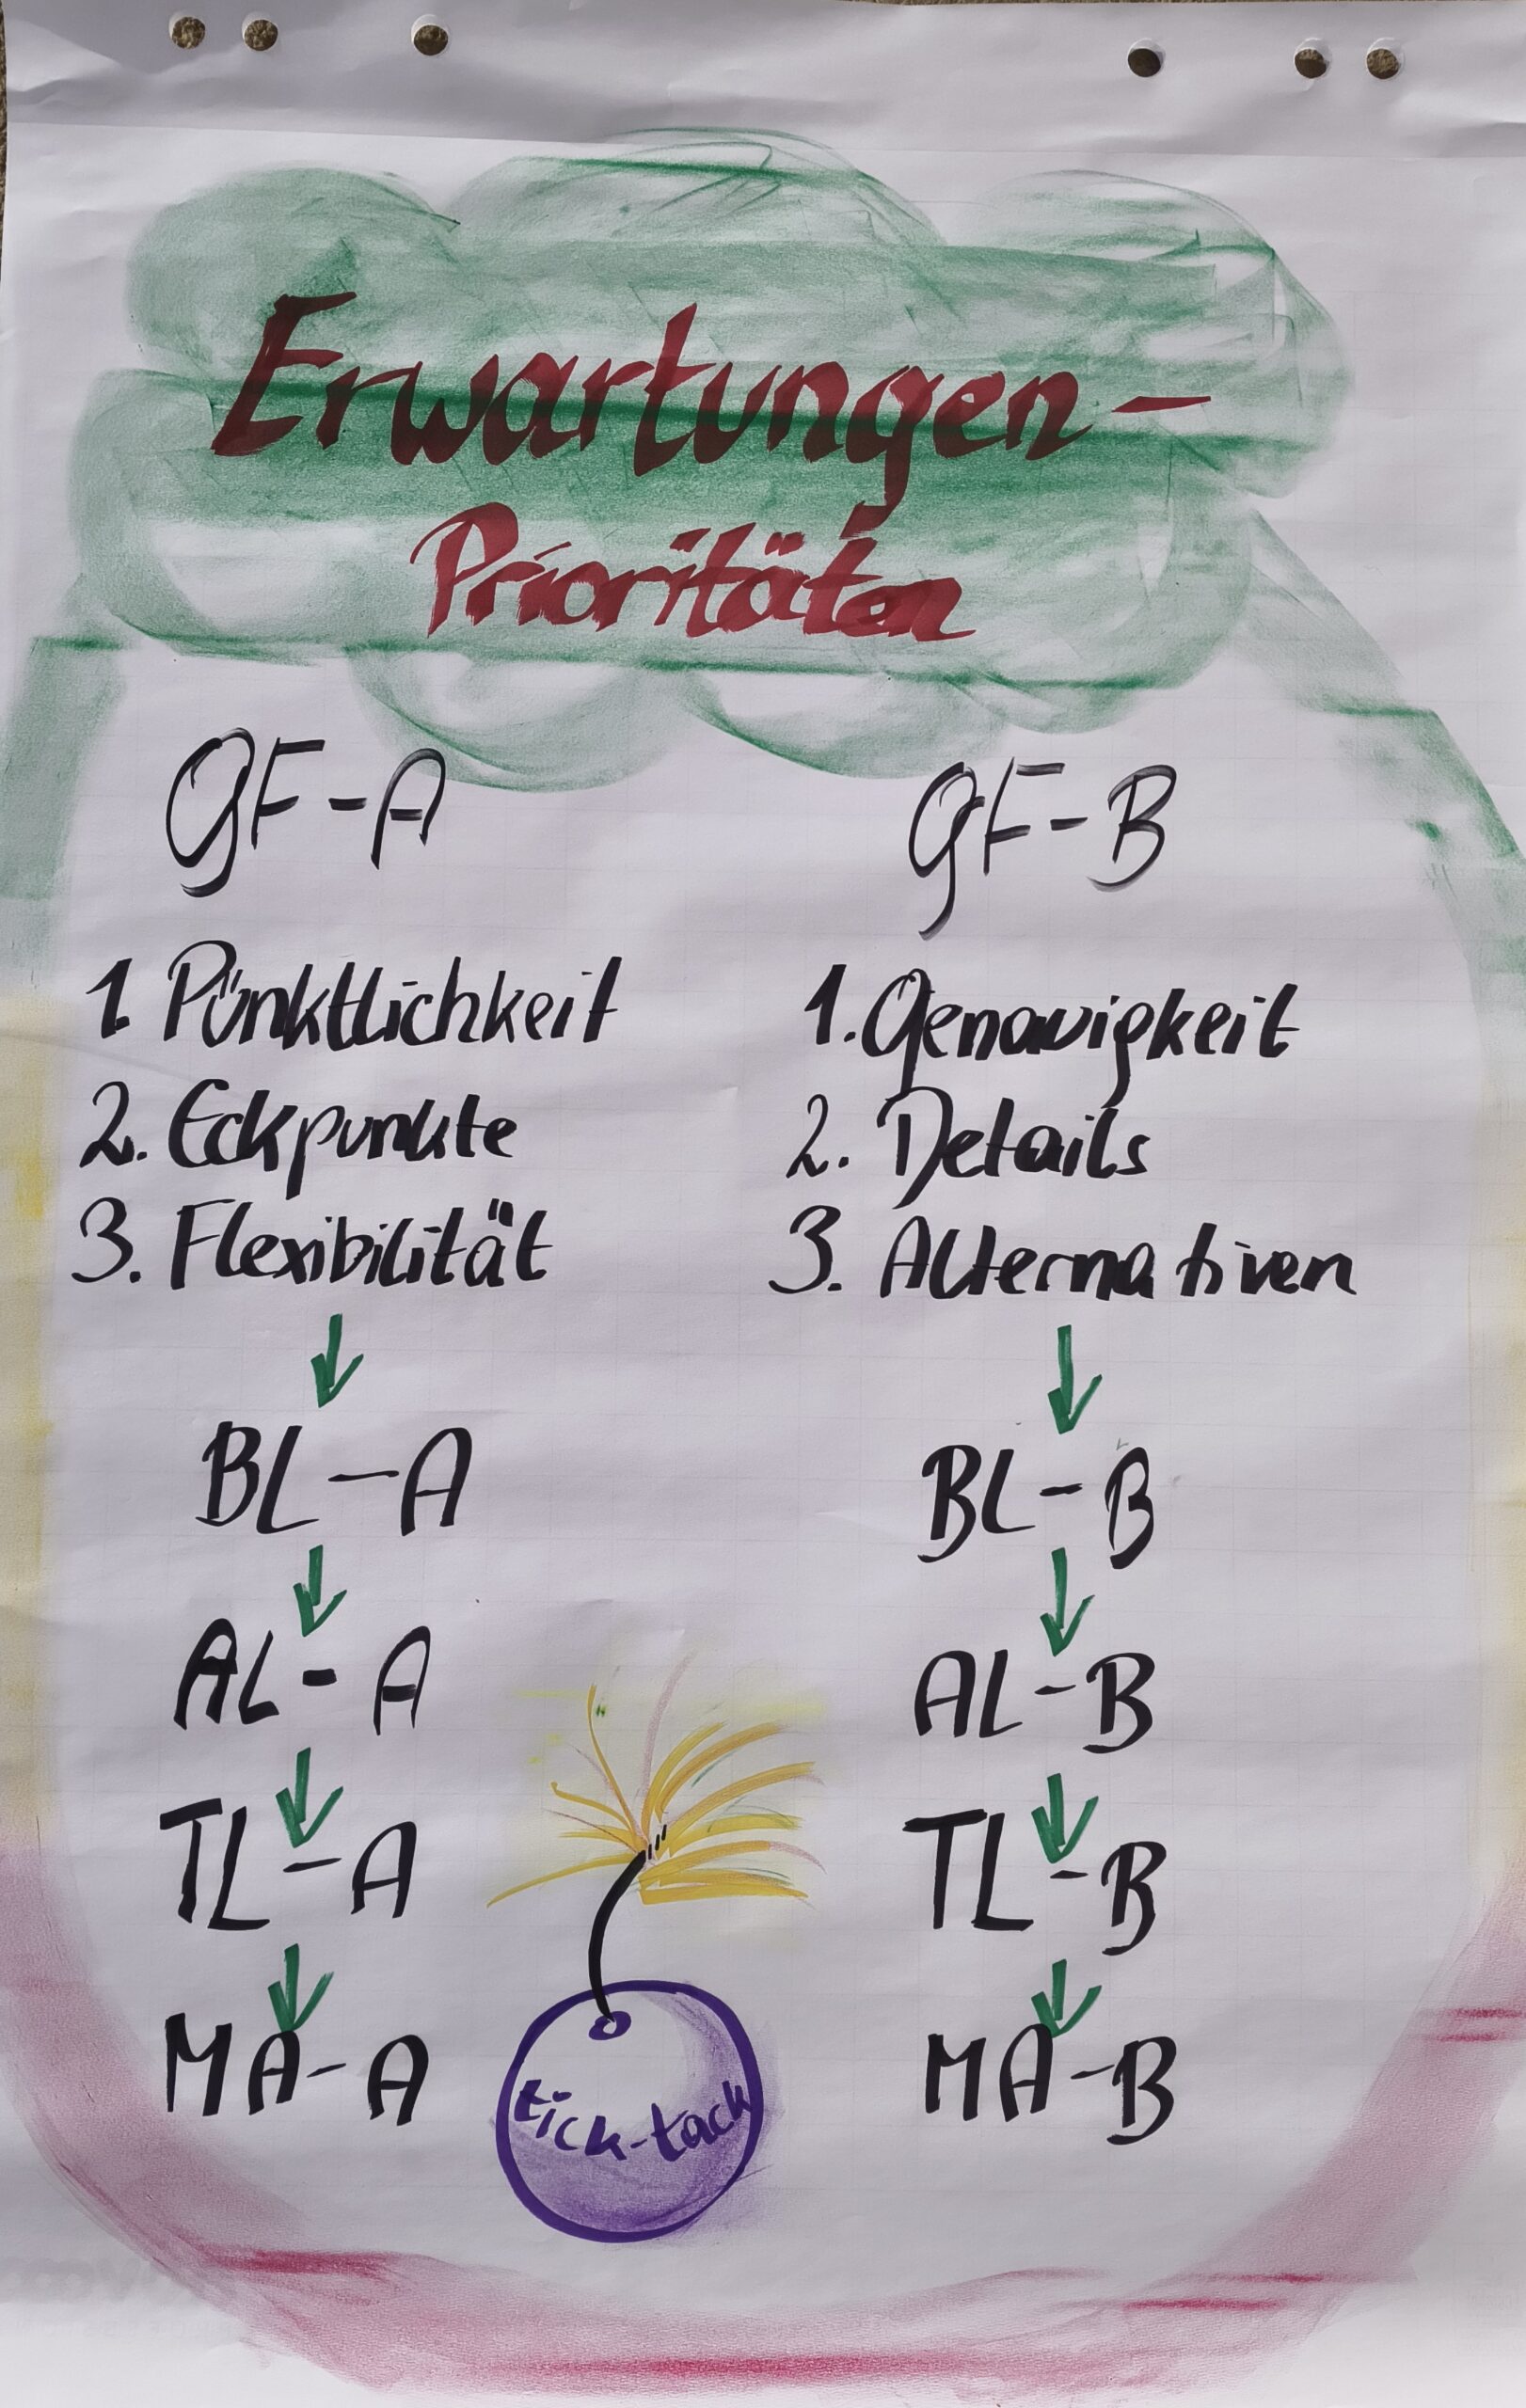 Erwartungen-
Prioritäten
GF-A
1. Pünktlichkeit
2. Eckpunkte
3. Flexibilität
BL-A
AL-A
TL-A
MA-A
GF-B
1. Genauigkeit
2. Details
3. Alternativen
BL-B
AL-B
TL-B
MA-B
tick-tack